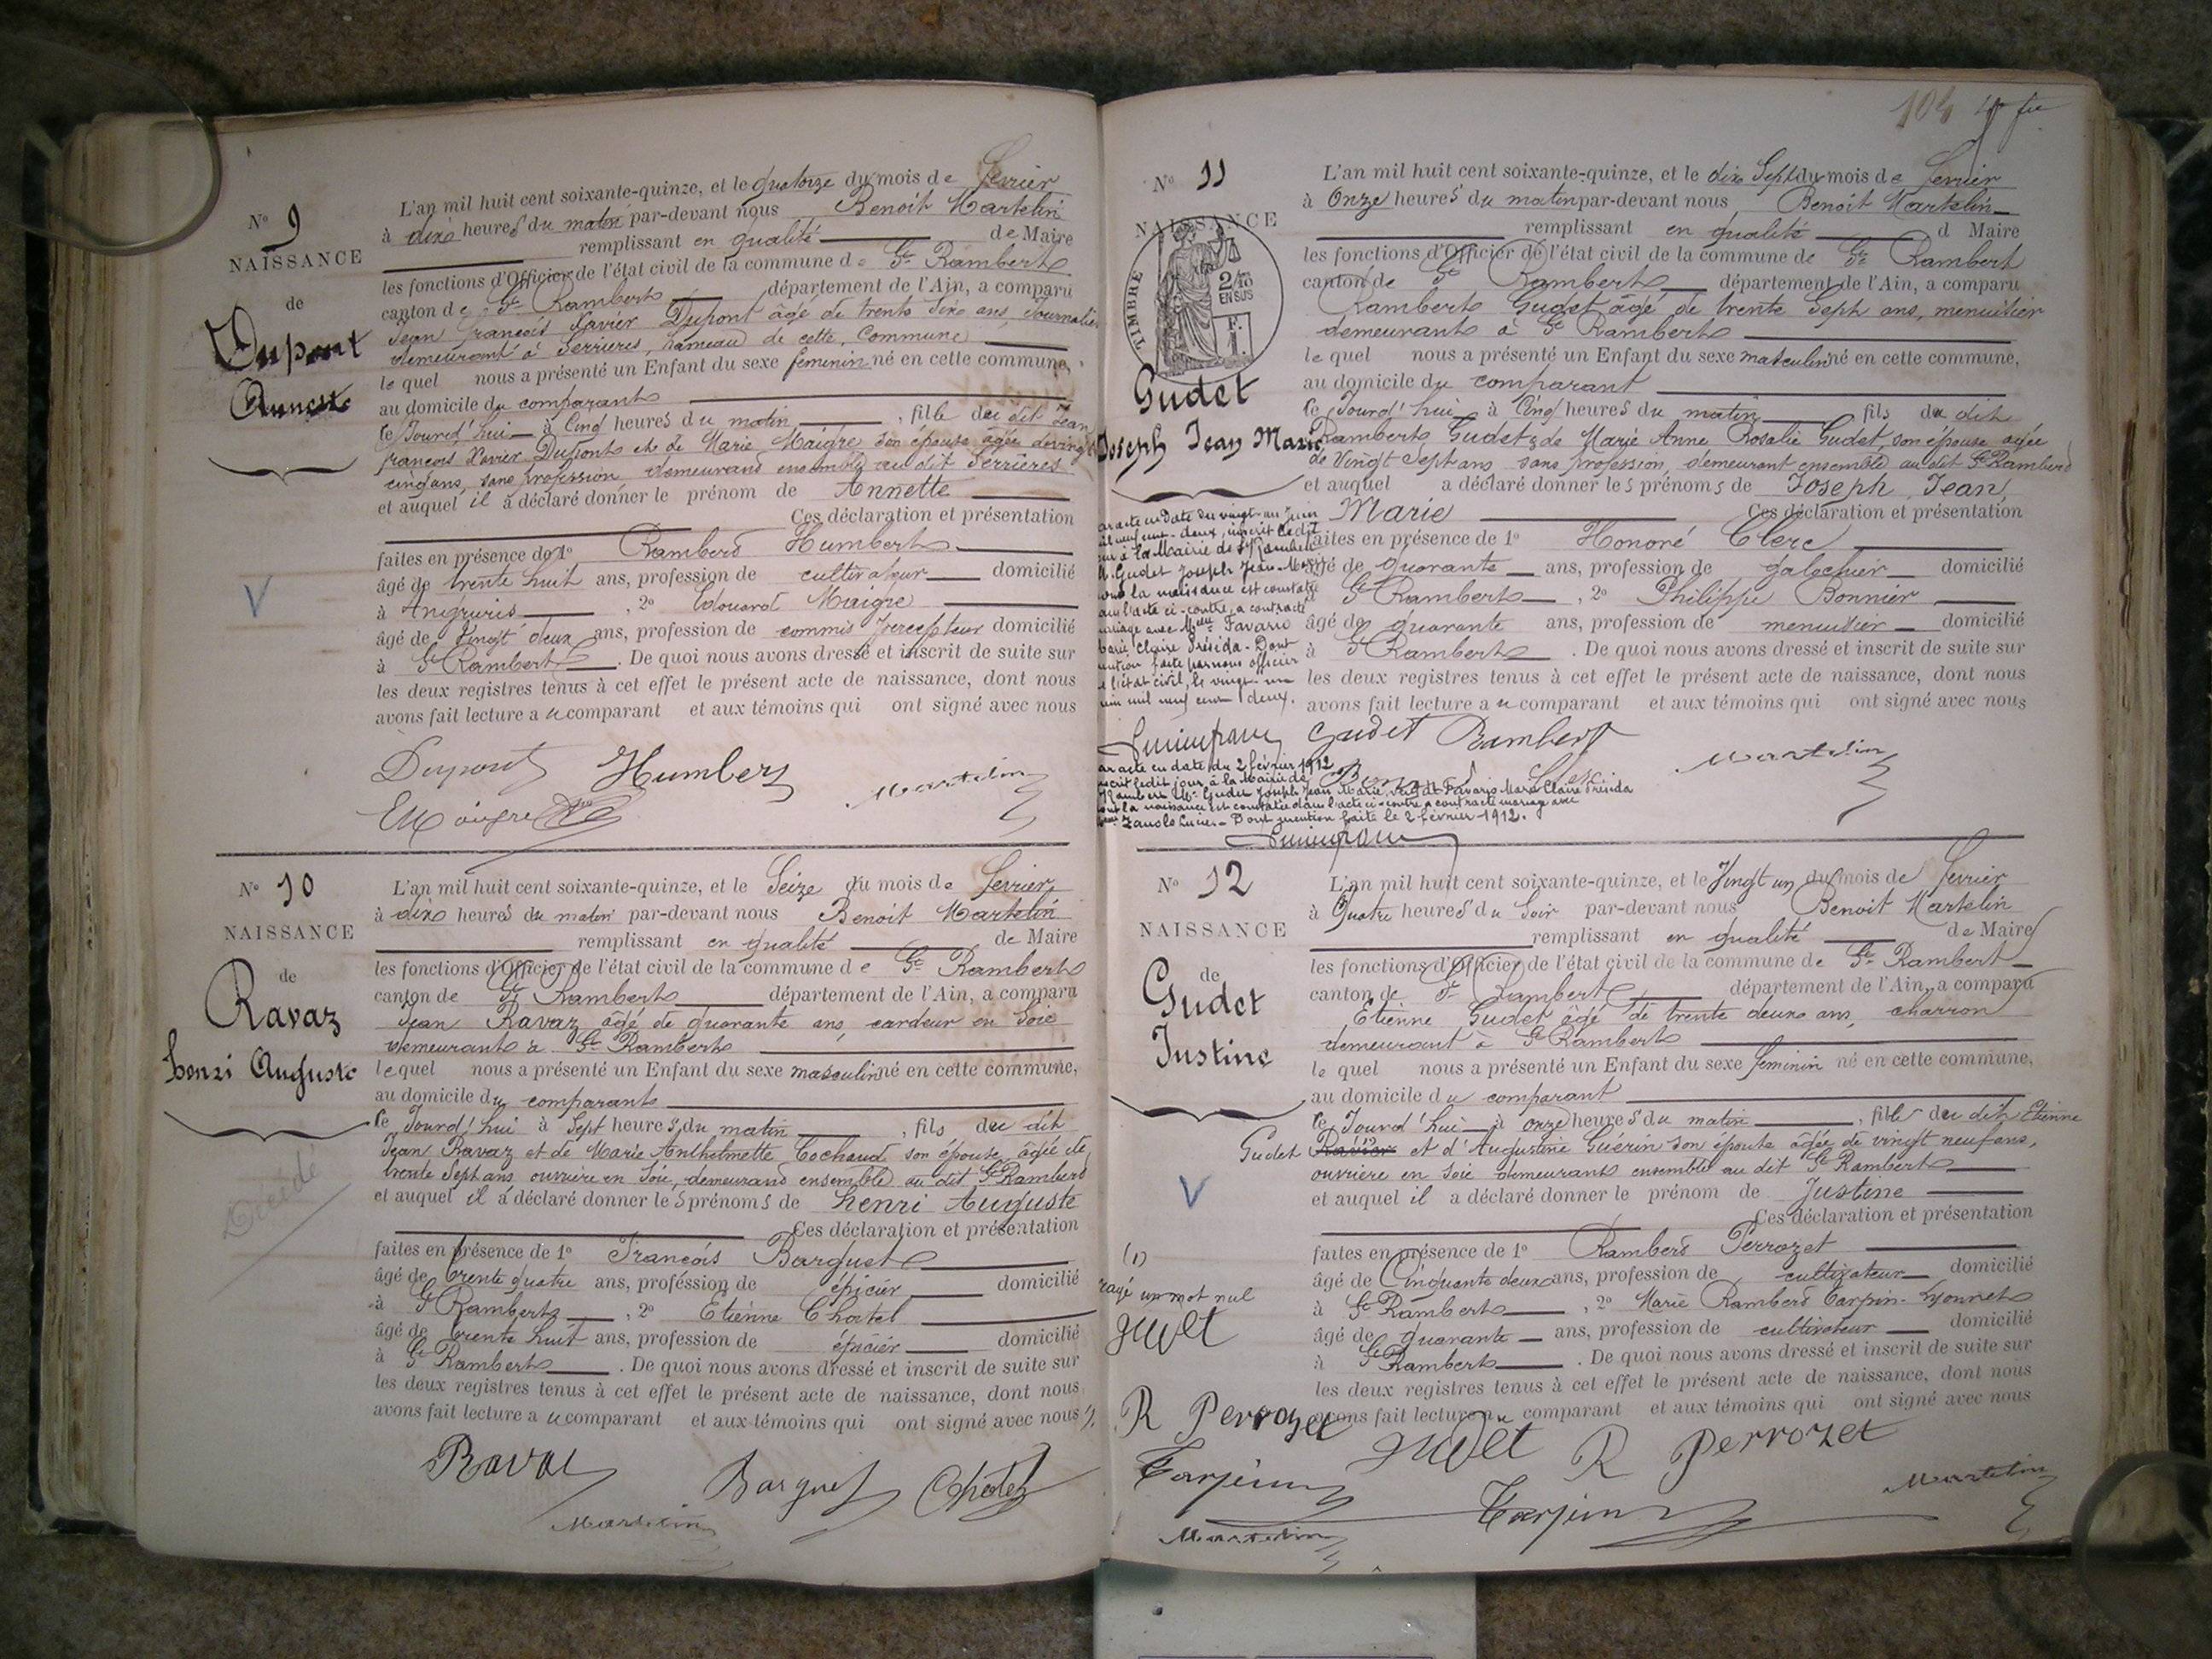 N° 9
NAISSANCE
de
Dupont
Annette
L'an mil huit cent soixante-quinze, et le quatorze du mois de fevrier
à dix heures du matin par-devant nous Benoit Martelin
remplissant en qualité de Maire
les fonctions d'Officier de l'état civil de la commune de St Rambert
canton de St Rambert département de l'Ain, a comparu
Jean françois Xavier Dupont âgé de trente six ans, Journalier
demeurant à Serrières, hameau de cette Commune
lequel nous a présenté un Enfant du sexe feminin né en cette commune,
au domicile du comparant
ce Jourd'hui à Cinq heures du matin, fille du dit Jean
françois Xavier Dupont et de Marie Maigre son épouse âgée de vingt
cinq ans, sans profession, demeurant ensemble au dit Serrières
et auquel il a déclaré donner le prénom de Annette
Ces déclaration et présentation
faites en présence de 1° Rambert Humbert
âgé de trente huit ans, profession de cultivateur domicilié
à Angrieres, 2° Edouard Maigre
âgé de Vingt deux ans, profession de commis percepteur domicilié
à St Rambert. De quoi nous avons dressé et inscrit de suite sur
les deux registres tenus à cet effet le présent acte de naissance, dont nous
avons fait lecture au comparant et aux témoins qui ont signé avec nous
Dupont Humbert Martelin
E Maigre
N° 10
NAISSANCE
de
Ravaz
henri Auguste
Décédé
L'an mil huit cent soixante-quinze, et le Seize du mois de fevrier
à dix heures du matin par-devant nous Benoit Martelin
remplissant en qualité de Maire
les fonctions d'Officier de l'état civil de la commune de St Rambert
canton de St Rambert département de l'Ain, a comparu
Jean Ravaz âgé de quarante ans, cardeur en Soie
demeurant à St Rambert
lequel nous a présenté un Enfant du sexe masculin né en cette commune,
au domicile du comparant
ce Jourd'hui à Sept heures du matin, fils du dit
Jean Ravaz et de Marie Anthelmette Cochaud son épouse âgée de
trente Sept ans ouvrière en Soie, demeurant ensemble au dit St Rambert
et auquel il a déclaré donner les prénoms de henri Auguste
Ces déclaration et présentation
faites en présence de 1° François Barquet
âgé de trente quatre ans, profession de épicier domicilié
à St Rambert, 2° Etienne Chatel
âgé de trente huit ans, profession de épicier domicilié
à St Rambert. De quoi nous avons dressé et inscrit de suite sur
les deux registres tenus à cet effet le présent acte de naissance, dont nous
avons fait lecture au comparant et aux témoins qui ont signé avec nous
Ravaz Barquet Chatel
Martelin
104
N° 11
NAISSANCE
TIMBRE
2/10
EN SUS
Gudet
Joseph Jean Marie
L'an mil huit cent soixante-quinze, et le dix Sept du mois de fevrier
à Onze heures du matin par-devant nous Benoit Martelin
remplissant en qualité d Maire
les fonctions d'Officier de l'état civil de la commune de St Rambert
canton de St Rambert département de l'Ain, a comparu
Rambert Gudet âgé de trente Sept ans, menuisier
demeurant à St Rambert
lequel nous a présenté un Enfant du sexe masculin né en cette commune,
au domicile du comparant
ce Jourd'hui à Cinq heures du matin fils du dit
Rambert Gudet & de Marie Anne Rosalie Gudet, son épouse agée
de Vingt Sept ans sans profession, demeurant ensemble au dit St Rambert
et auquel a déclaré donner les prénoms de Joseph Jean
Marie Ces déclaration et présentation
faites en présence de 1° Honoré Clerc
âgé de quarante ans, profession de galochier domicilié
St Rambert, 2° Philippe Bonnier
âgé de quarante ans, profession de menuisier domicilié
à St Rambert. De quoi nous avons dressé et inscrit de suite sur
les deux registres tenus à cet effet le présent acte de naissance, dont nous
avons fait lecture au comparant et aux témoins qui ont signé avec nous
ar acte en date du vingt-un Juin
il neuf cent-deux, inscrit ledit
our à la Mairie de St Rambert
M. Gudet Joseph Jean-Marie
dont la naissance est constatée
dans l'acte ci-contre, a contracté
mariage avec Melle Favario
Marie Claire Présida. Dont
mention faite par nous officier
de l'état civil, le vingt-un
juin mil neuf cent deux.
Gudet Rambert Martelin
ar acte en date du 2 février 1912
inscrit ledit jour à la Mairie de
St Rambert Mr Gudet Joseph Jean Marie, veuf de Favario Marie Claire Présida
dont la naissance est constatée dans l'acte ci-contre a contracté mariage avec
Zanolo Lucie. Dont mention faite le 2 février 1912.
N° 12
NAISSANCE
de
Gudet
Justine
L'an mil huit cent soixante-quinze, et le Vingt un du mois de fevrier
à Quatre heures du Soir par-devant nous Benoit Martelin
remplissant en qualité de Maire
les fonctions d'Officier de l'état civil de la commune de St Rambert
canton de St Rambert département de l'Ain, a comparu
Etienne Gudet âgé de trente deux ans, charron
demeurant à St Rambert
lequel nous a présenté un Enfant du sexe feminin né en cette commune,
au domicile du comparant
ce Jourd'hui à onze heures du matin, fille du dit Etienne
Gudet et d'Augustine Guérin son épouse âgée de vingt neuf ans,
ouvriere en Soie demeurant ensemble au dit St Rambert
et auquel il a déclaré donner le prénom de Justine
Ces déclaration et présentation
faites en présence de 1° Rambert Perrozet
âgé de Cinquante deux ans, profession de cultivateur domicilié
à St Rambert, 2° Marie Rambert Tarpin-Lyonnet
âgé de quarante ans, profession de cultivateur domicilié
à St Rambert. De quoi nous avons dressé et inscrit de suite sur
les deux registres tenus à cet effet le présent acte de naissance, dont nous
avons fait lecture au comparant et aux témoins qui ont signé avec nous
(1)
rayé un mot nul
gudet
R Perrozet gudet R Perrozet
Tarpin Tarpin Martelin
Martelin